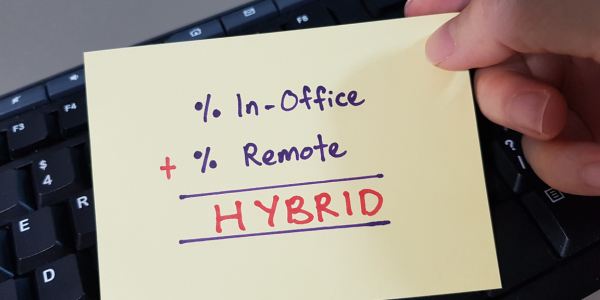 F6
F3
F4
$
4
E
R
D
?
% In-Office
+ % Remote
HYBRID